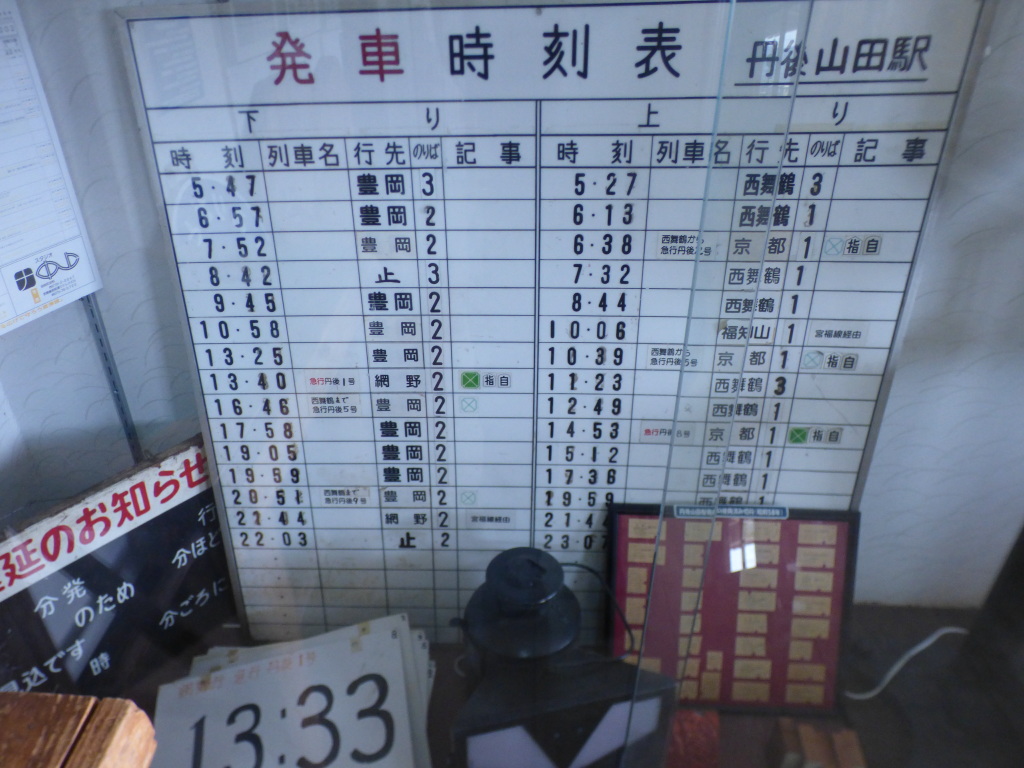 発車時刻表 丹後山田駅
下り 上り
時刻 列車名 行先 のりば 記事 時刻 列車名 行先 のりば 記事
5・47 豊岡 3 5・27 西舞鶴 3
6・57 豊岡 2 6・13 西舞鶴 1
7・52 豊岡 2 6・38 西舞鶴から 急行丹後2号 京都 1 指自
8・42 止 3 7・32 西舞鶴 1
9・45 豊岡 2 8・44 西舞鶴 1
10・58 豊岡 2 10・06 福知山 1 宮福線経由
13・25 豊岡 2 10・39 西舞鶴から 急行丹後5号 京都 1 指自
13・40 急行丹後1号 網野 2 指自 11・23 西舞鶴 3
16・46 西舞鶴まで 急行丹後5号 豊岡 2 12・49 西舞鶴 1
17・58 豊岡 2 14・53 急行丹後 号 京都 1 指自
19・05 豊岡 2 15・12 西舞鶴 1
19・59 豊岡 2 17・36 西舞鶴 1
20・51 西舞鶴まで 急行丹後9号 豊岡 2 19・59 西舞鶴 1
21・44 網野 2 宮福線経由 21・4
22・03 止 2 23・0
延のお知らせ
行
分発 分ほど
のため
分ごろに
込です 時
急行 丹後1号
13:33